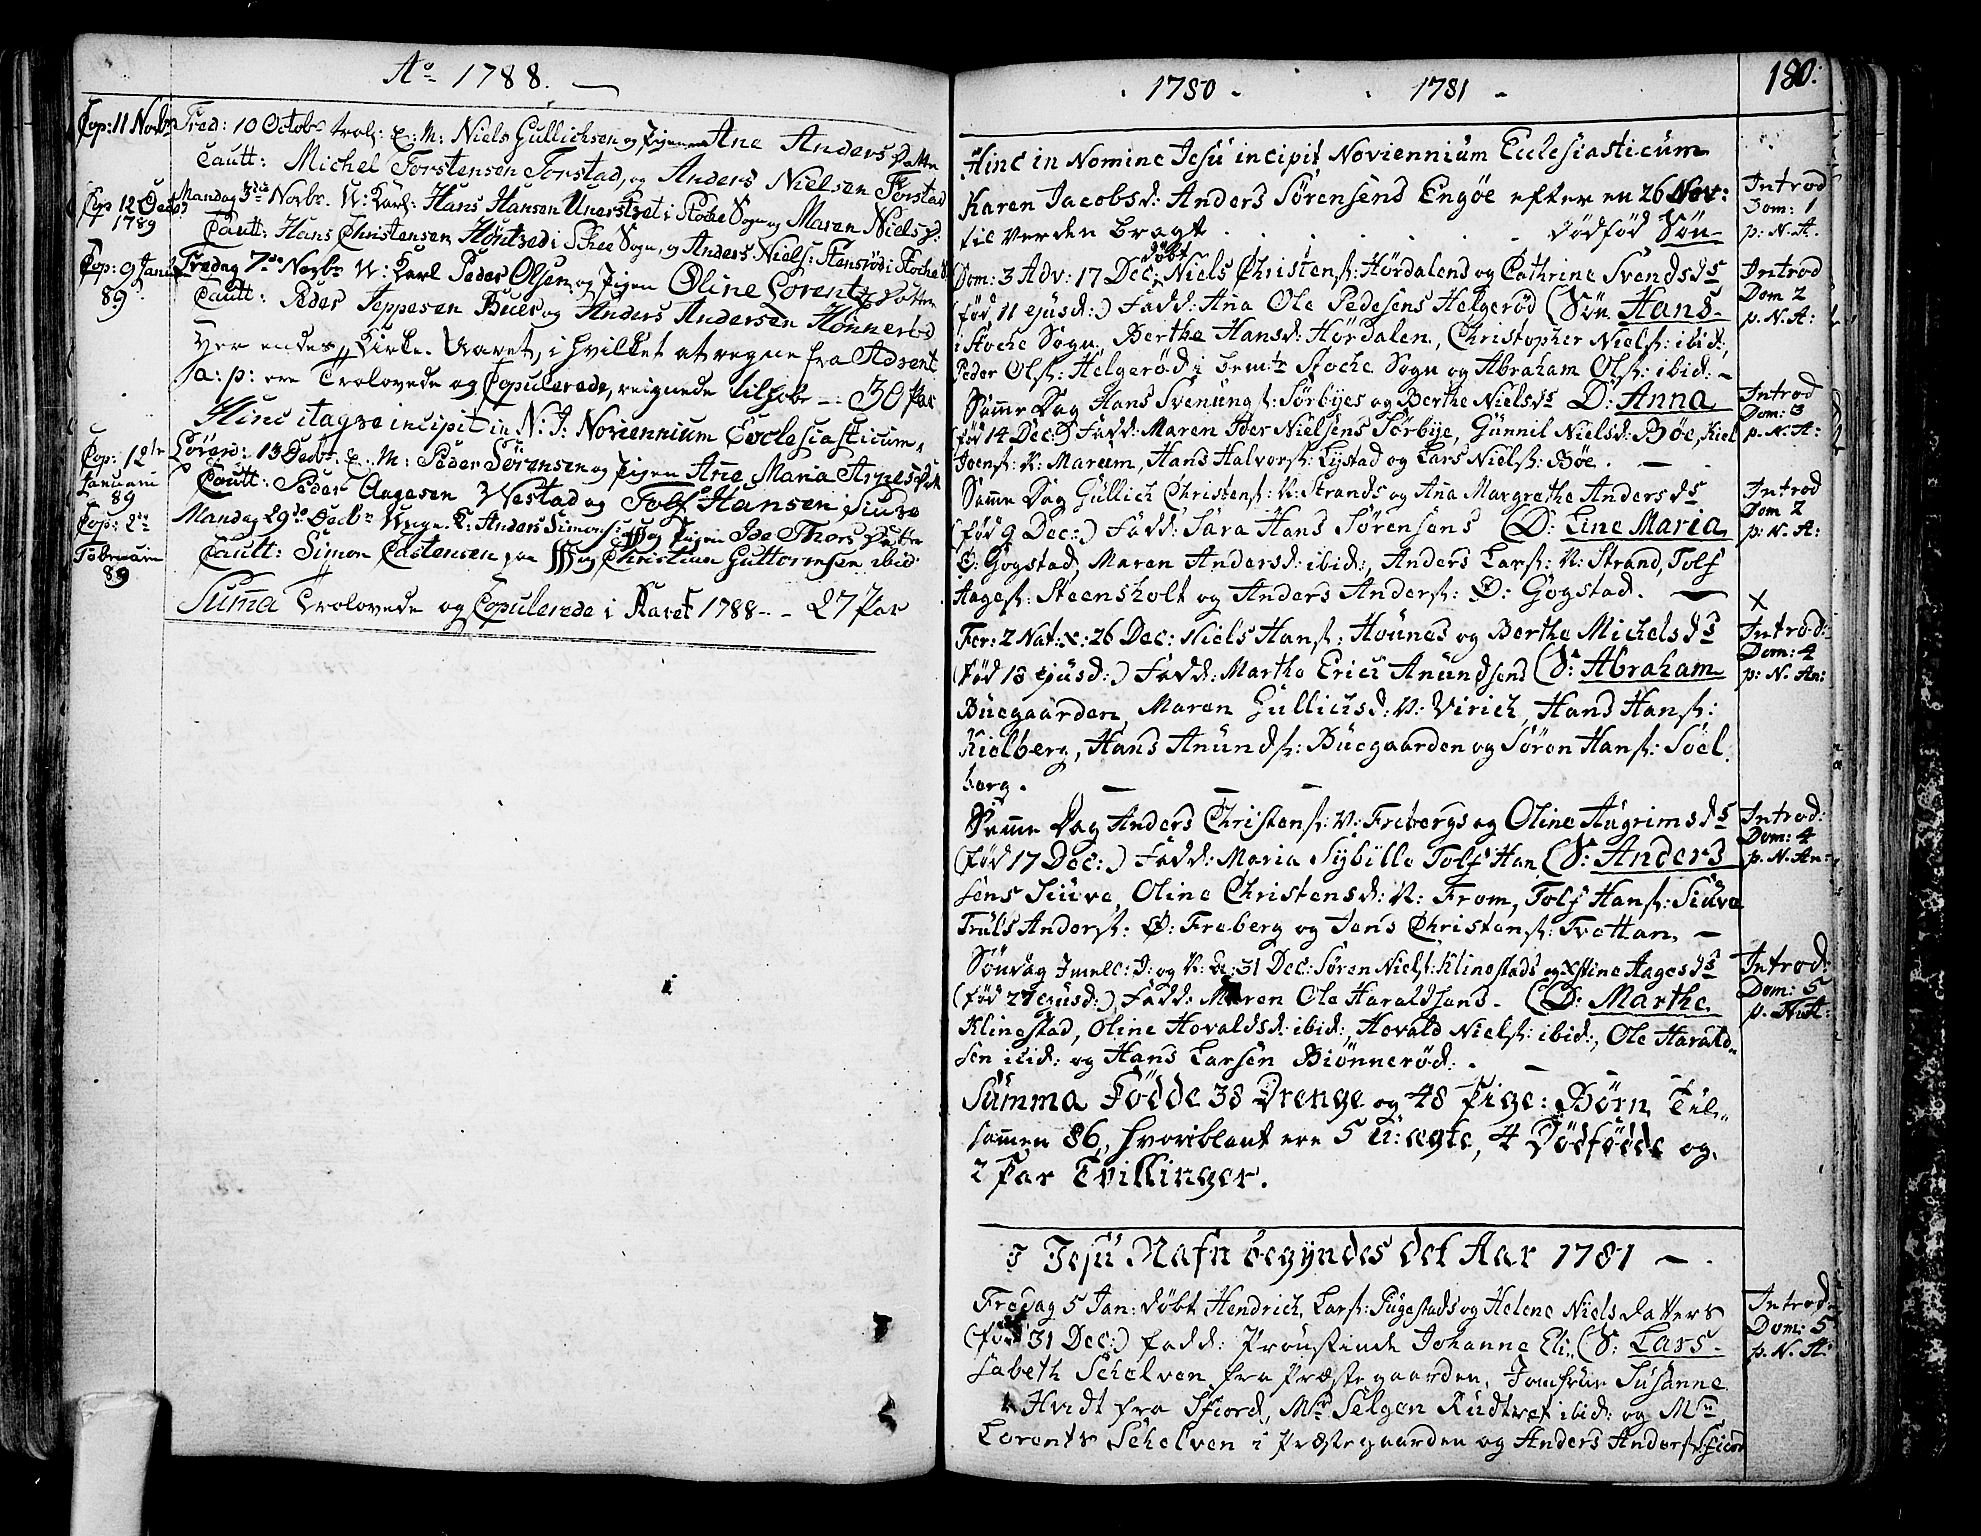 Ao 1788.
Cop: 11 Novbr
Fred: 10 Octobr trol: E: M: Niels Gullichsen og Pigen Ane Anders Datter
Cautt: Michel Torstensen Torstad, og Anders Nielsen Torstad
Cop 12 1789
Mandag 3die Novbr. U: Karl: Hans Hansen i Stoke Sogn og Maren Niels D:
Cautt: Hans Christensen i Skee Sogn, og Anders Niels: i Stoche S
Cop: 9 Janu 89
Fredag 7de Novbr U: Karl Peder Olsen og Pigen Oline Lorentz Datter
Cautt: Peder Jeppesen Bues og Anders Andersen Hønnerød
Her endes Kirke-Aaret, i hvilket at regne fra Advent
a: p: ere Trolovede og Copulerede, reignede tilhobe - 30 Par
Hinc itaque incipit in N: J: Noviennium Ecclesiasticum.
Cop: 12te Januarii 89
Løverd: 13 Decbr. E: M: Peder Sørensen og Pigen Ane Maria Datt
Cautt: Peder Aagesen Westad og Tolf Hansen Siuve
Cop: 2den Februarii 89
Mandag 29de Decbr Unge K: Anders Simons: og Pigen Ide Thors Datter
Cautt: Simon Castensen paa og Christian Guttormsen ibid
Summa Trolovede og Copulerede i Aaret 1788 - - 27 Par
. 1780 . . 1781 . 180:
Hinc in Nomine Jesu incipit Noviennium Ecclesiasticum
Karen Jacobsd: Anders Sørensens Engøe efter en 26 Nov:
til Verden bragt . . . . . . dødfød Søn
Introd Dom: 1 p: N. A.
Dom: 3 Adv: 17 Dec: døbt Niels Christens: Hørdalens og Cathrine Svendsds
(fød 11 ejusd:) Fadd: Ana Ole Pedesens Helgerød (Søn Hans
i Stoche Sogn, Berthe Hansd: Hørdalen, Christopher Niels: ibid:,
Peder Ols: Helgerød i bemte Stoche Sogn og Abraham Ols: ibid: -
Introd Dom 2 p. N. A:
Samme Dag Hans Svenungs: Sørbyes og Berthe Nielsds D: Anna
(fød 14 Dec:) Fadd: Maren Iver Nielsens Sørbye, Gunnil Nielsd: Bøe, Kiel
Joens: N: Mareem, Hans Halvors: Lystad og Lars Niels: Bøe. -
Introd Dom: 3 p: N: A:
Samme Dag Gullich Christens: N: Strands og Ana Margrethe Andersds
(fød 9 Dec:) Fadd: Sara Hans Sørensens (D: Line Maria
Ø: Gogstad, Maren Andersd: ibid:, Anders Lars: N: Strand, Tolf
Aages: Steensholt og Anders Anders: Ø: Gogstad. -
Introd Dom 2 p: N. A:
Fer: 2 Nat: X: 26 Dec: Niels Hans: Hounes og Berthe Michelsds
(fød 18 ejusd:) Fadd: Marthe Erich Anundsens (S: Abraham
Buegaarden, Maren Gullichsd: N: Virich, Hans Hans:
Kielberg, Hans Anunds: Buegaarden og Søren Hans: Søel
berg. - - -
x Introd: Dom: 4 p: N. An:
Samme Dag Anders Christens: N: Frebergs og Oline Augrimsds
(fød 17 Dec:) Fadd: Maria Sybille Tolf Han (S: Anders
sens Siuve, Oline Christensd: N: From, Tolf Hans: Siuve
Truls Anders: Ø: Freberg og Jens Christens: Tvettan. -
Introd: Dom: 4 p. N. An:
Søndag Imell: J: og N: A: 31 Dec: Søren Niels: Klinestads og Xstine Aagesds
(fød 27 ejusd:) Fadd: Maren Ole Haraldsens - (D: Marthe
Klinestad, Oline Hovaldsd: ibid:, Hovald Niels: ibid:, Ole Harald-
sen ibid: og Hans Larsen Biønnerød: -
Introd: Dom: 5 p. N. A:
Summa Fødde 38 Drenge og 48 Pige: Børn Til-
sammen 86, hvoriblant ere 5 U: ægte, 4 Dødfødde og
2 Par Tvillinger.
I Jesu Nafn begyndes det Aar 1781 -
Fredag 5 Jan: døbt Hendrich Lars: Pugestads og Helene Niels datters
(fød 31 Dec:) fadd: Proustinde Johanne Eli- (S: Lars
sabeth Schelven fra Præstegaarden, Jomfrue Susanne
Hvidt fra Fiord, Mr Selgen Rudtret ibid: og Mr
Lorentz Schelven i Præstegaarden og Anders Anders: Fiord
Introd Dom: 5 p. N. A: